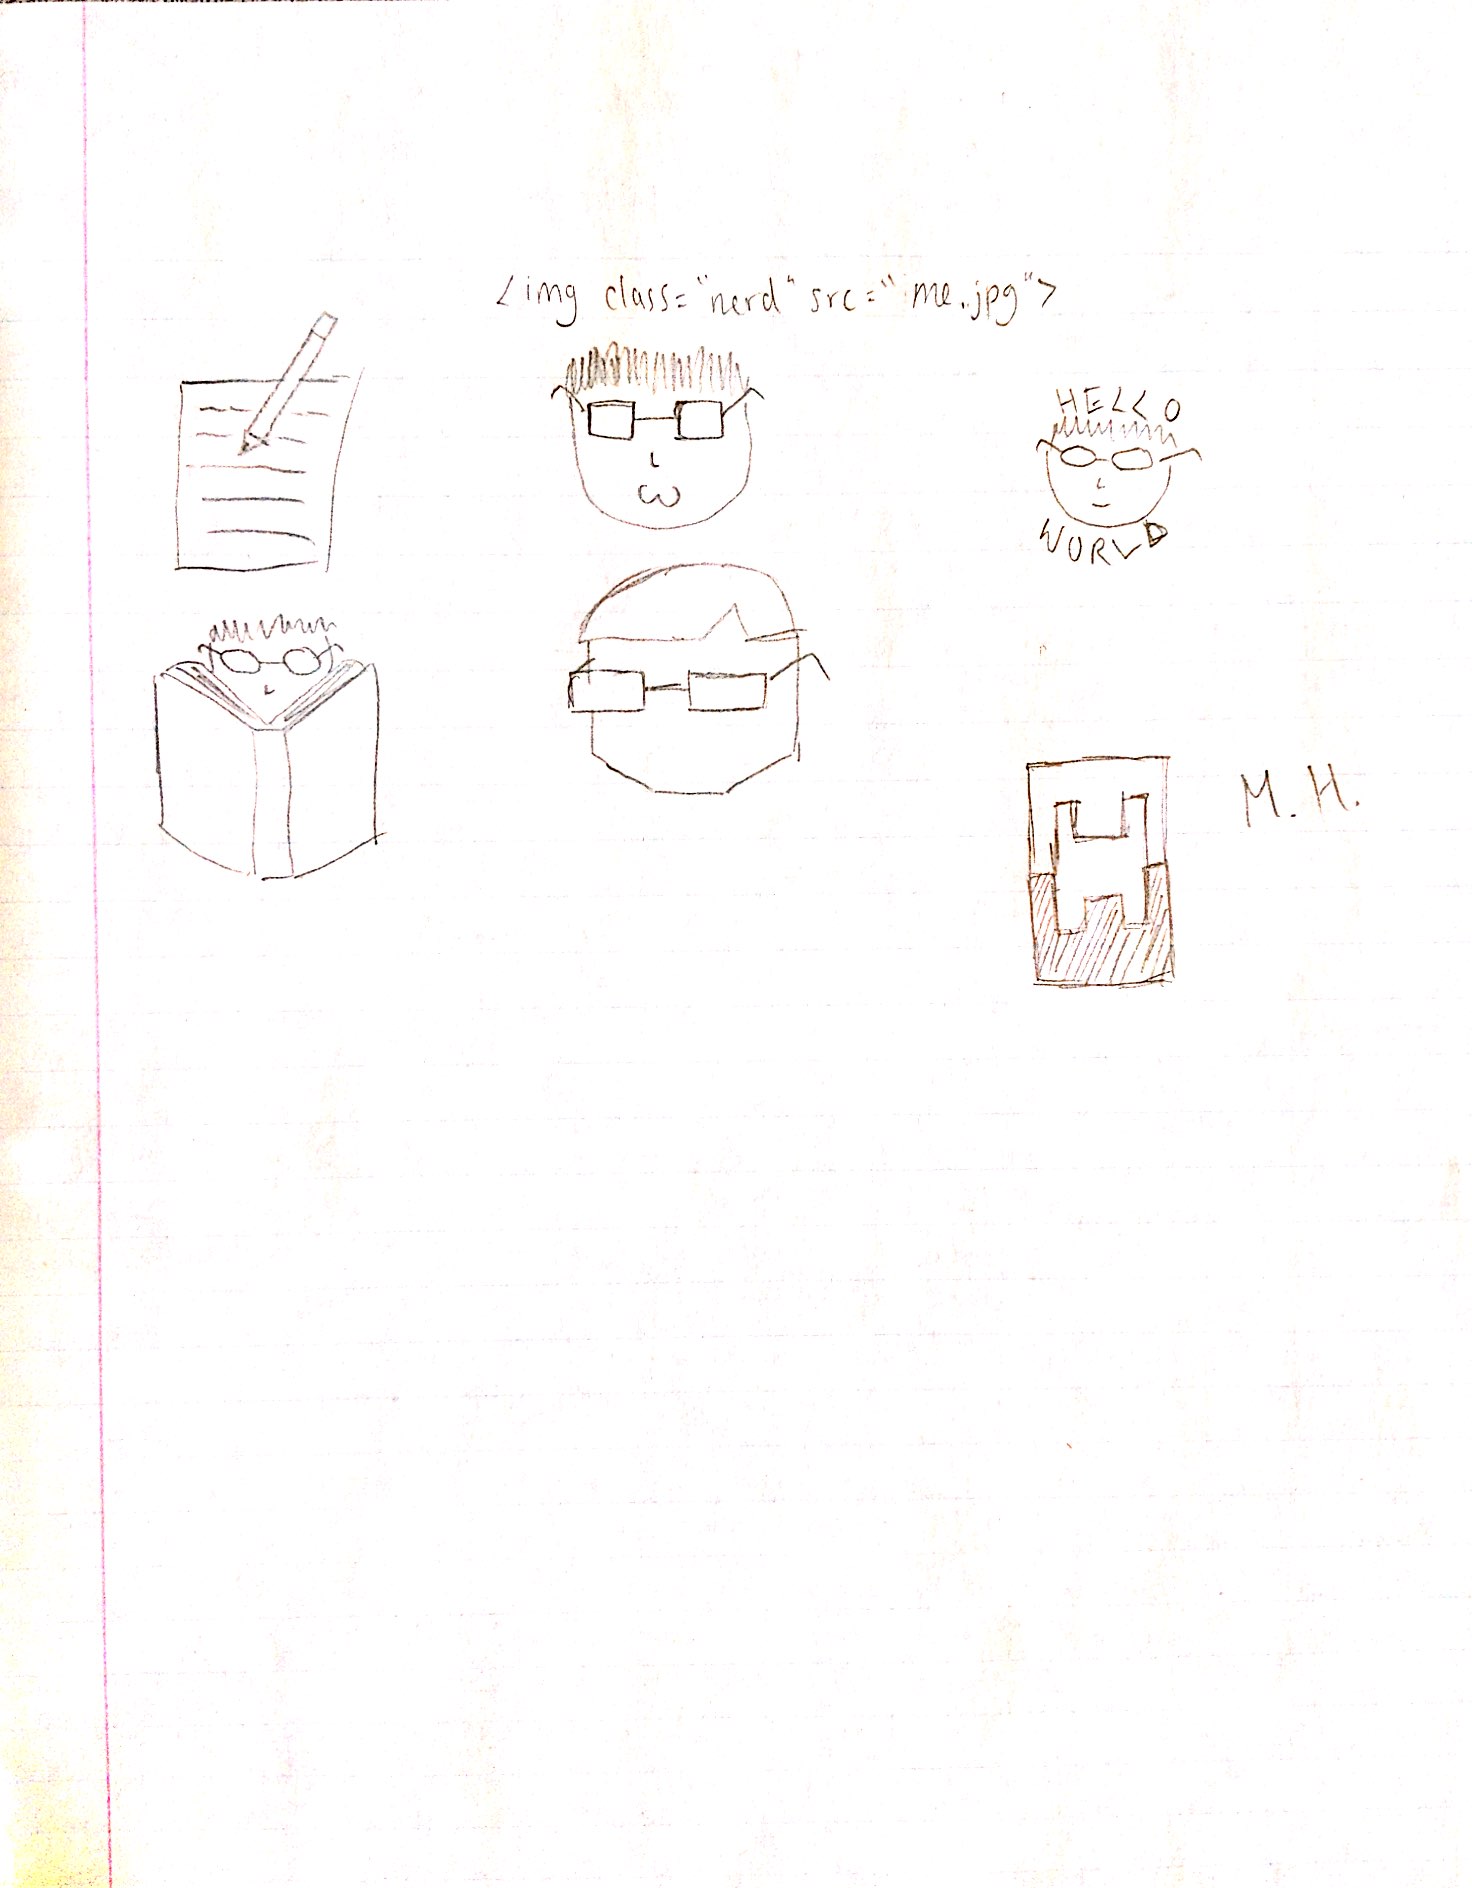 <img class="nerd" src="me.jpg">
HELLO
WORLD
H
M. H.